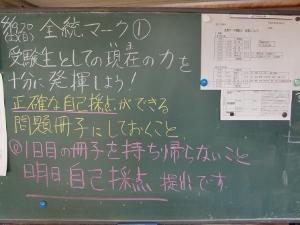 全統マーク①
受験生としての現在の力を
十分に発揮しよう!
正確な自己採点ができる
問題冊子にしておくこと
◎1日目の冊子を持ち帰らないこと
明日自己採点提出です